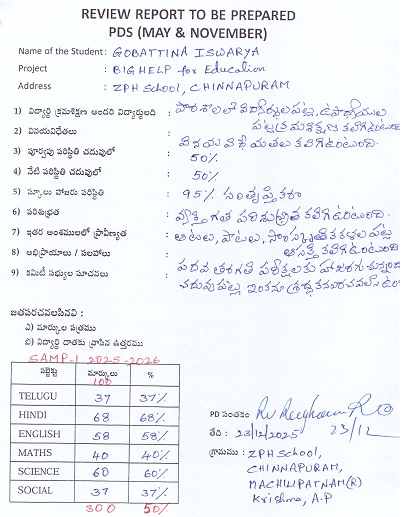 REVIEW REPORT TO BE PREPARED
PDS (MAY & NOVEMBER)
Name of the Student: GOBATTINA ISWARYA
Project : BIGHELP for Education
Address : ZPH School, CHINNAPURAM
1) విద్యార్థి క్రమశిక్షణ అందరి విద్యార్థులది : పాఠశాలలో విద్యార్థులపట్ల, ఉపాధ్యాయుల
పట్ల క్రమశిక్షణ కలిగిఉంటుంది
2) వినయవిధేతలు : వినయ విధేయతలు కలిగిఉంటుంది.
3) పూర్వపు పరిస్థితి చదువులో : 50%
4) నేటి పరిస్థితి చదువులో : 50%
5) స్కూలు హాజరు పరిస్థితి : 95% సంతృప్తికరం
6) పరిశుభ్రత : వ్యక్తిగత పరిశుభ్రత కలిగిఉంటుంది.
7) ఇతర అంశములలో ప్రావీణ్యత : ఆటలు, పాటలు, సాంస్కృతిక కళలపట్ల
ఆసక్తి కలిగిఉంటుంది
8) అభిప్రాయాలు / సలహాలు :
9) కమిటీ సభ్యుల సూచనలు : పదవ తరగతి పరీక్షలకు హాజరగుచున్నది
చదువుపట్ల ఇంకనూ శ్రద్ధ
జతపరచవలసినవి :
ఎ) మార్కుల పత్రము
బి) విద్యార్థి దాతకు వ్రాసిన ఉత్తరము
SAMP-I 2025-2026
సబ్జెక్టు మార్కులు %
100
TELUGU 37 37%
HINDI 68 68%
ENGLISH 58 58%
MATHS 40 40%
SCIENCE 60 60%
SOCIAL 37 37%
300 50%
PD సంతకం
23/12
తేది : 23/12/2025
గ్రామము : ZPH School,
CHINNAPURAM,
MACHILIPATNAM(R)
Krishna, A.P